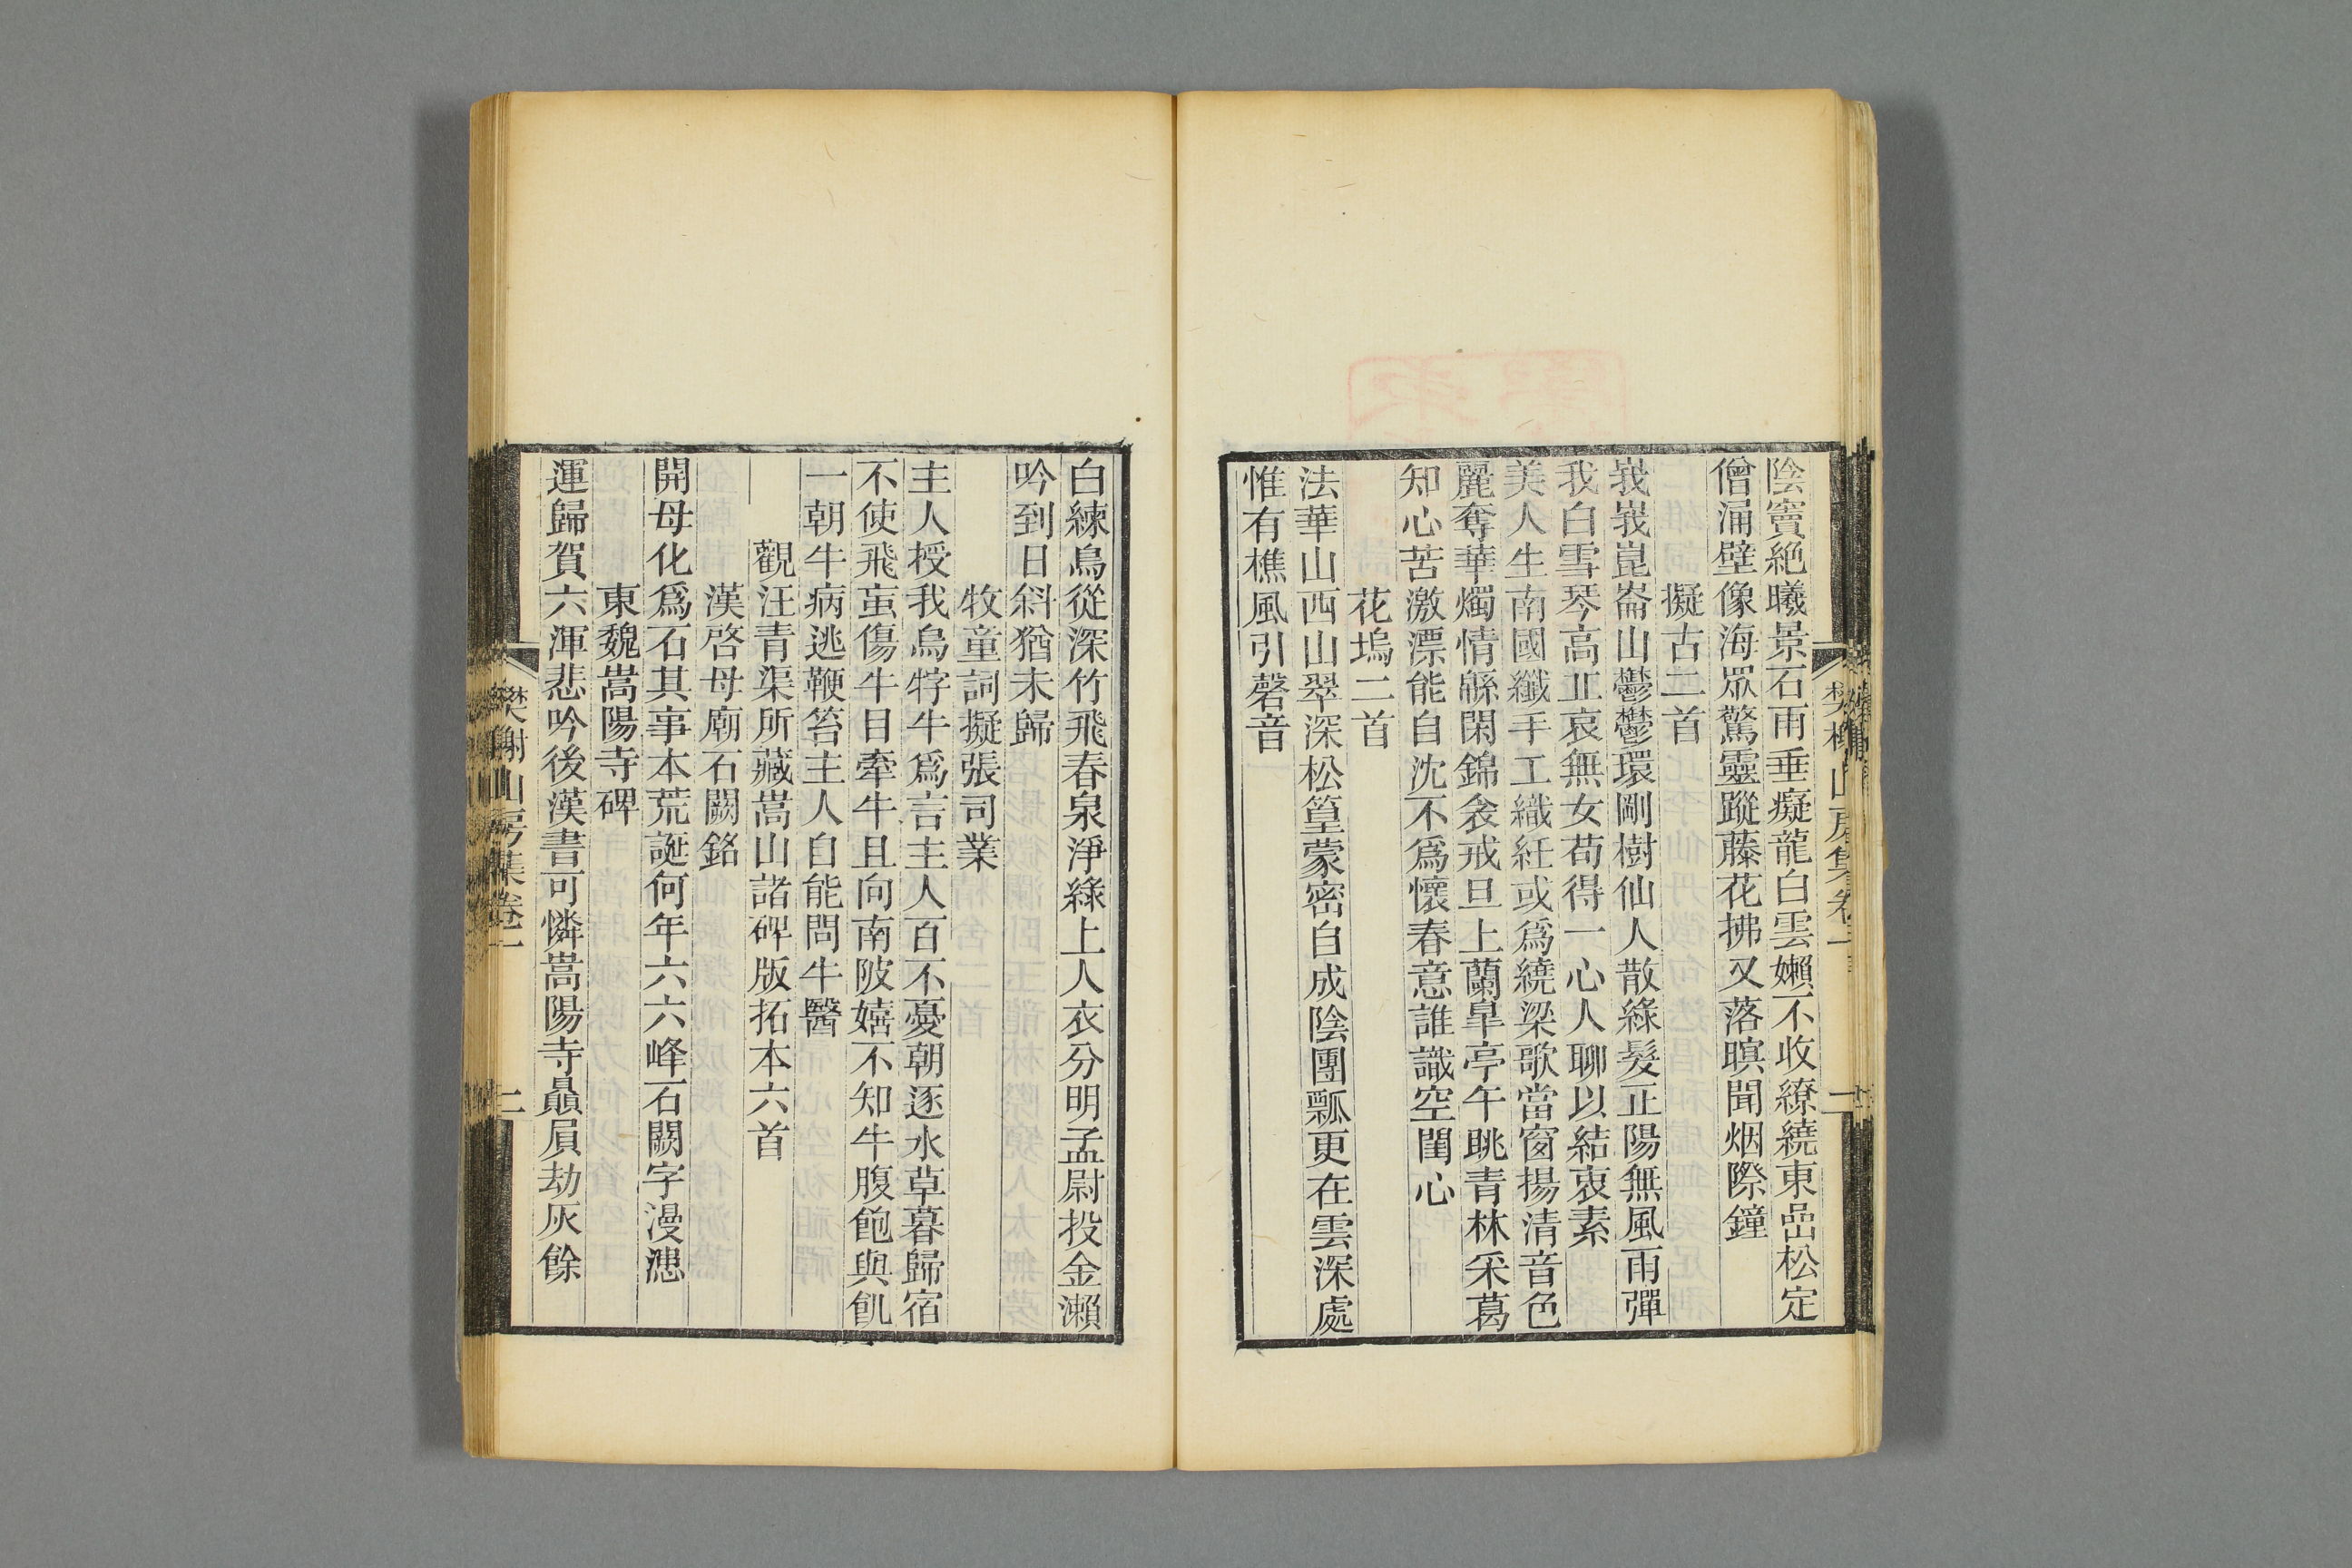 陰竇絶曦景石雨垂癡龍白雲嬾不收繚繞東嵒松定
僧涌壁像海眾驚靈蹤藤花拂又落暝聞烟際鐘
擬古二首
峩峩崑崙山鬱鬱環剛樹仙人散綠髮正陽無風雨彈
我白雪琴高正哀無女苟得一心人聊以結衷素
美人生南國纖手工織紝或爲繞梁歌當窗揚清音色
麗奪華燭情緜閑錦衾戒旦上蘭皐亭午眺青林采葛
知心苦激漂能自沈不爲懷春意誰識空閨心
花塢二首
法華山西山翠深松篁蒙密自成陰團瓢更在雲深處
惟有樵風引磬音
白練鳥從深竹飛春泉淨綠上人衣分明孟尉投金瀨
吟到日斜猶未歸
牧童詞擬張司業
主人授我烏牸牛爲言主人百不憂朝逐水草暮歸宿
不使飛䖟傷牛日牽牛且向南陂嬉不知牛腹飽與飢
一朝牛病逃鞭笞主人自能問牛醫
觀汪青渠所藏嵩山諸碑版拓本六首
漢啓母廟石闕銘
開母化爲石其事本荒誕何年六六峰石闕字漫漶
東魏嵩陽寺碑
運歸賀六渾悲吟後漢書可憐嵩陽寺贔屓劫灰餘
樊榭山房集卷一
二